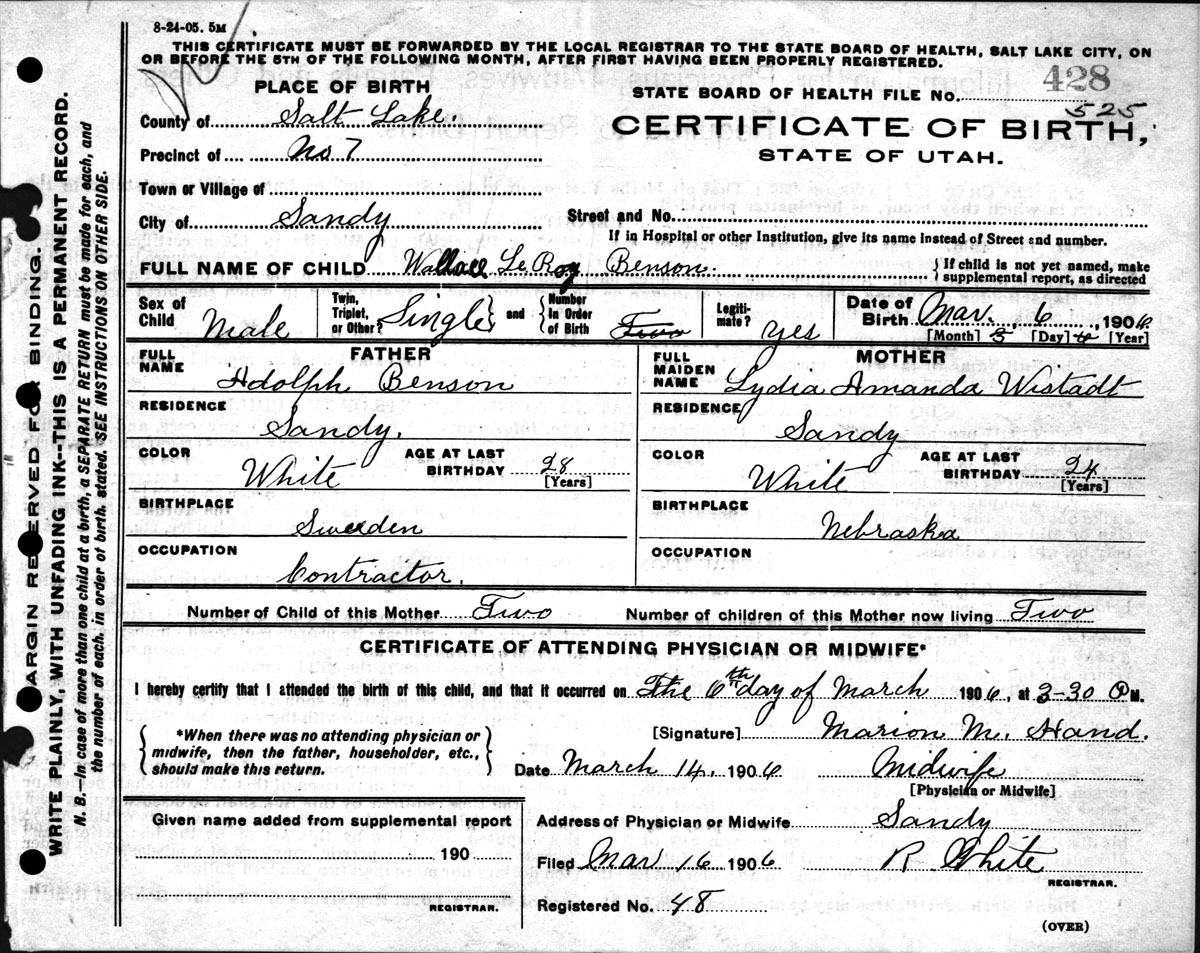 8-24-05. 5M
THIS CERTIFICATE MUST BE FORWARDED BY THE LOCAL REGISTRAR TO THE STATE BOARD OF HEALTH, SALT LAKE CITY, ON
OR BEFORE THE 5TH OF THE FOLLOWING MONTH, AFTER FIRST HAVING BEEN PROPERLY REGISTERED.
PLACE OF BIRTH
County of Salt Lake.
Precinct of No 7
Town or Village of
City of Sandy
STATE BOARD OF HEALTH FILE NO. 428
525
CERTIFICATE OF BIRTH,
STATE OF UTAH.
Street and No.
If in Hospital or other Institution, give its name instead of Street and number.
FULL NAME OF CHILD Wallace LeRoy Benson. { If child is not yet named, make
supplemental report, as directed
Sex of Child Male
Twin, Triplet, or Other? Single } and { Number In Order of Birth Two
Legitimate? yes
Date of Birth Mar. 6, 1906
[Month] 3 [Day] 6 [Year]
FATHER
FULL NAME Adolph Benson
RESIDENCE Sandy.
COLOR White AGE AT LAST BIRTHDAY 28 [Years]
BIRTHPLACE Sweden
OCCUPATION Contractor.
MOTHER
FULL MAIDEN NAME Lydia Amanda Wistadt
RESIDENCE Sandy
COLOR White AGE AT LAST BIRTHDAY 24 [Years]
BIRTHPLACE Nebraska
OCCUPATION
Number of Child of this Mother Two Number of children of this Mother now living Two
CERTIFICATE OF ATTENDING PHYSICIAN OR MIDWIFE*
I hereby certify that I attended the birth of this child, and that it occurred on The 6th day of March 1906, at 3-30 P M.
{ *When there was no attending physician or
midwife, then the father, householder, etc.,
should make this return. }
[Signature] Marion M. Hand.
Date March 14, 1906 Midwife
[Physician or Midwife]
Given name added from supplemental report
190
REGISTRAR.
Address of Physician or Midwife Sandy
Filed Mar 16 1906 R White
REGISTRAR.
Registered No. 48
(OVER)
MARGIN RESERVED FOR BINDING.
WRITE PLAINLY, WITH UNFADING INK--THIS IS A PERMANENT RECORD.
N. B.—In case of more than one child at a birth, a SEPARATE RETURN must be made for each, and
the number of each, in order of birth, stated. SEE INSTRUCTIONS ON OTHER SIDE.